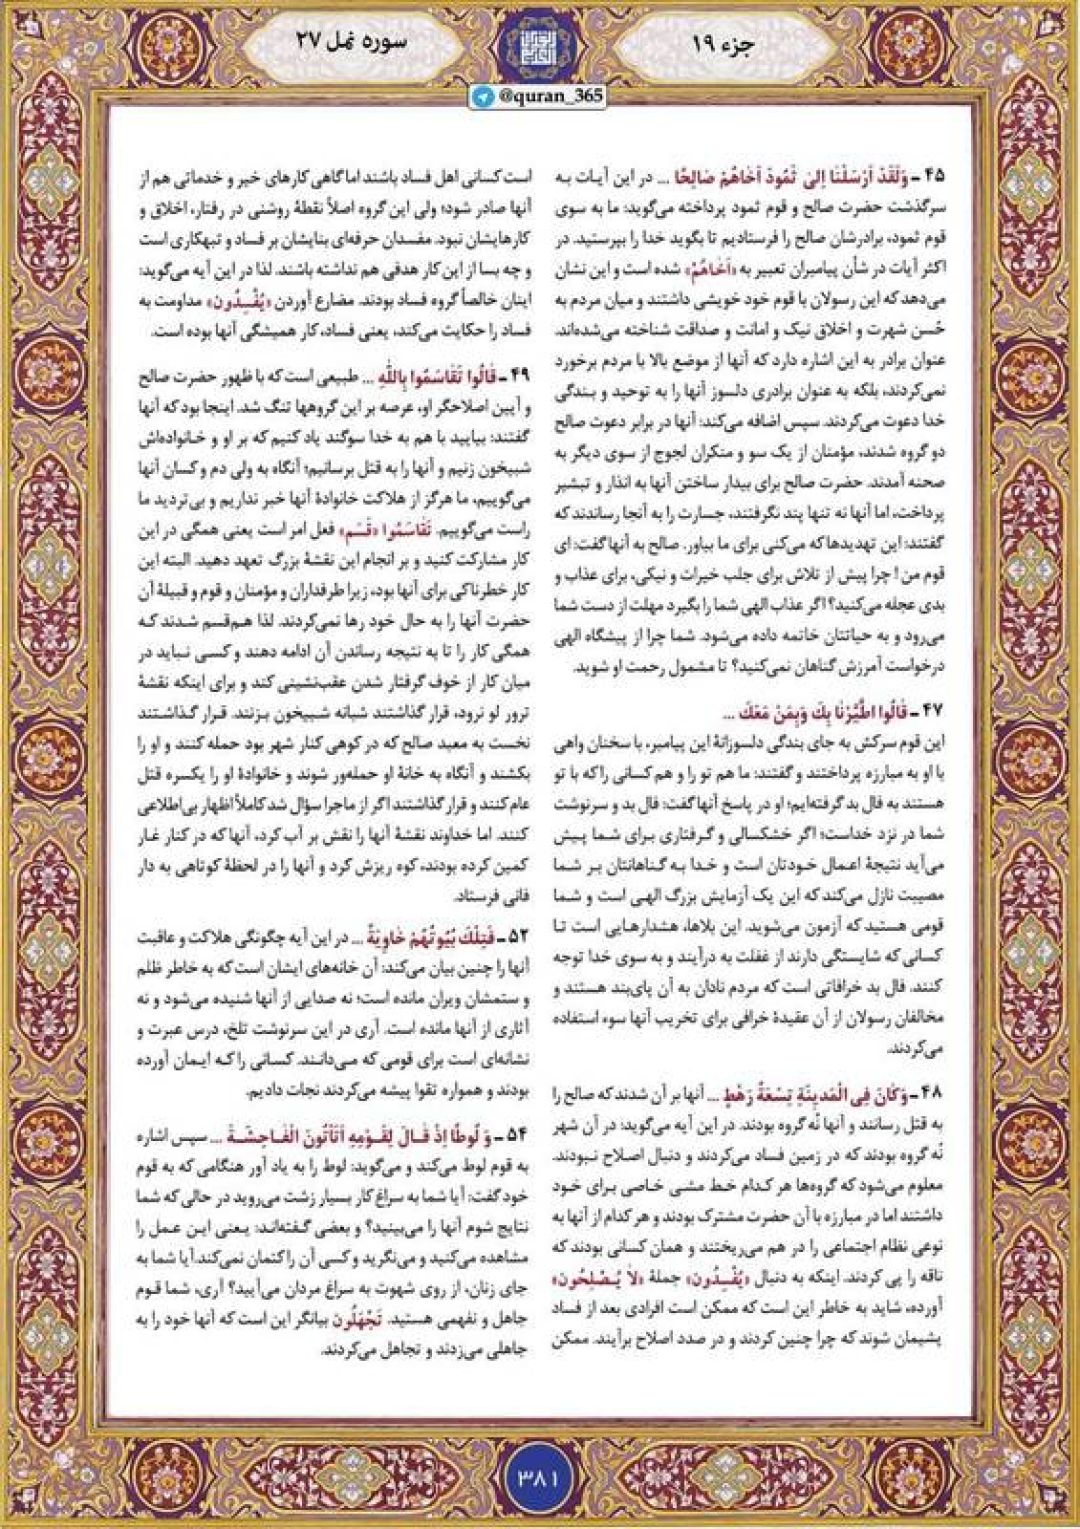 جزء ۱۹
سوره نمل ۲۷
@quran_365
۴۵ـ وَلَقَدْ اَرْسَلْنَا اِلیٰ ثَمُودَ اَخَاهُمْ صَالِحًا ... در این آیات به
سرگذشت حضرت صالح و قوم ثمود پرداخته می‌گوید: ما به سوی
قوم ثمود، برادرشان صالح را فرستادیم تا بگوید خدا را بپرستید. در
اکثر آیات در شأن پیامبران تعبیر به «اَخَاهُمْ» شده است و این نشان
می‌دهد که این رسولان با قوم خود خویشی داشتند و میان مردم به
حُسن شهرت و اخلاق نیک و امانت و صداقت شناخته می‌شده‌اند.
عنوان برادر به این اشاره دارد که آنها از موضع بالا با مردم برخورد
نمی‌کردند، بلکه به عنوان برادری دلسوز آنها را به توحید و بندگی
خدا دعوت می‌کردند. سپس اضافه می‌کند: آنها در برابر دعوت صالح
دو گروه شدند، مؤمنان از یک سو و منکران لجوج از سوی دیگر به
صحنه آمدند. حضرت صالح برای بیدار ساختن آنها به انذار و تبشیر
پرداخت، اما آنها نه تنها پند نگرفتند، جسارت را به آنجا رساندند که
گفتند: این تهدیدها که می‌کنی برای ما بیاور. صالح به آنها گفت: ای
قوم من! چرا پیش از تلاش برای جلب خیرات و نیکی، برای عذاب و
بدی عجله می‌کنید؟ اگر عذاب الهی شما را بگیرد مهلت از دست شما
می‌رود و به حیاتتان خاتمه داده می‌شود. شما چرا از پیشگاه الهی
درخواست آمرزش گناهان نمی‌کنید؟ تا مشمول رحمت او شوید.
۴۷ـ قَالُوا اطَّیَّرْنَا بِكَ وَبِمَنْ مَعَكَ ...
این قوم سرکش به جای بندگی دلسوزانهٔ این پیامبر، با سخنان واهی
با او به مبارزه پرداختند و گفتند: ما هم تو را و هم کسانی را که با تو
هستند به فال بد گرفته‌ایم؛ او در پاسخ آنها گفت: فال بد و سرنوشت
شما در نزد خداست؛ اگر خشکسالی و گرفتاری برای شما پیش
می‌آید نتیجهٔ اعمال خودتان است و خدا به گناهانتان بر شما
مصیبت نازل می‌کند که این یک آزمایش بزرگ الهی است و شما
قومی هستید که آزمون می‌شوید. این بلاها، هشدارهایی است تا
کسانی که شایستگی دارند از غفلت به درآیند و به سوی خدا توجه
کنند. فال بد خرافاتی است که مردم نادان به آن پای‌بند هستند و
مخالفان رسولان از آن عقیدهٔ خرافی برای تخریب آنها سوء استفاده
می‌کردند.
۴۸ـ وَكَانَ فِی الْمَدینَةِ تِسْعَةُ رَهْطٍ ... آنها بر آن شدند که صالح را
به قتل رسانند و آنها نُه گروه بودند. در این آیه می‌گوید: در آن شهر
نُه گروه بودند که در زمین فساد می‌کردند و دنبال اصلاح نبودند.
معلوم می‌شود که گروه‌ها هر کدام خط مشی خاصی برای خود
داشتند اما در مبارزه با آن حضرت مشترک بودند و هر کدام از آنها به
نوعی نظام اجتماعی را در هم می‌ریختند و همان کسانی بودند که
ناقه را پی کردند. اینکه به دنبال «یُفْسِدُون» جملهٔ «لاٰ یُصْلِحُون»
آورده، شاید به خاطر این است که ممکن است افرادی بعد از فساد
پشیمان شوند که چرا چنین کردند و در صدد اصلاح برآیند. ممکن
است کسانی اهل فساد باشند اما گاهی کارهای خیر و خدماتی هم از
آنها صادر شود؛ ولی این گروه اصلاً نقطهٔ روشنی در رفتار، اخلاق و
کارهایشان نبود. مفسدان حرفه‌ای بنایشان بر فساد و تبهکاری است
و چه بسا از این کار هدفی هم نداشته باشند. لذا در این آیه می‌گوید:
اینان خالصاً گروه فساد بودند. مضارع آوردن «یُفْسِدُون» مداومت به
فساد را حکایت می‌کند، یعنی فساد، کار همیشگی آنها بوده است.
۴۹ـ قَالُوا تَقَاسَمُوا بِاللّٰهِ ... طبیعی است که با ظهور حضرت صالح
و آیین اصلاحگر او، عرصه بر این گروهها تنگ شد. اینجا بود که آنها
گفتند: بیایید با هم به خدا سوگند یاد کنیم که بر او و خانواده‌اش
شبیخون زنیم و آنها را به قتل برسانیم؛ آنگاه به ولی دم و کسان آنها
می‌گوییم، ما هرگز از هلاکت خانوادهٔ آنها خبر نداریم و بی‌تردید ما
راست می‌گوییم. تَقَاسَمُوا «قَسَم» فعل امر است یعنی همگی در این
کار مشارکت کنید و بر انجام این نقشهٔ بزرگ تعهد دهید. البته این
کار خطرناکی برای آنها بود، زیرا طرفداران و مؤمنان و قوم و قبیلهٔ آن
حضرت آنها را به حال خود رها نمی‌کردند. لذا هم‌قسم شدند که
همگی کار را تا به نتیجه رساندن آن ادامه دهند و کسی نباید در
میان کار از خوف گرفتار شدن عقب‌نشینی کند و برای اینکه نقشهٔ
ترور لو نرود، قرار گذاشتند شبانه شبیخون بزنند. قرار گذاشتند
نخست به معبد صالح که در کوهی کنار شهر بود حمله کنند و او را
بکشند و آنگاه به خانهٔ او حمله‌ور شوند و خانوادهٔ او را یکسره قتل
عام کنند و قرار گذاشتند اگر از ماجرا سؤال شد کاملاً اظهار بی‌اطلاعی
کنند. اما خداوند نقشهٔ آنها را نقش بر آب کرد، آنها که در کنار غار
کمین کرده بودند، کوه ریزش کرد و آنها را در لحظهٔ کوتاهی به دار
فانی فرستاد.
۵۲ـ فَتِلْكَ بُیُوتُهُمْ خَاوِیَةً ... در این آیه چگونگی هلاکت و عاقبت
آنها را چنین بیان می‌کند: آن خانه‌های ایشان است که به خاطر ظلم
و ستمشان ویران مانده است؛ نه صدایی از آنها شنیده می‌شود و نه
آثاری از آنها مانده است. آری در این سرنوشت تلخ، درس عبرت و
نشانه‌ای است برای قومی که می‌دانند. کسانی را که ایمان آورده
بودند و همواره تقوا پیشه می‌کردند نجات دادیم.
۵۴ـ وَ لُوطًا اِذْ قَالَ لِقَوْمِهِ اَتَأْتُونَ الْفَاحِشَةَ ... سپس اشاره
به قوم لوط می‌کند و می‌گوید: لوط را به یاد آور هنگامی که به قوم
خود گفت: آیا شما به سراغ کار بسیار زشت می‌روید در حالی که شما
نتایج شوم آنها را می‌بینید؟ و بعضی گفته‌اند: یعنی این عمل را
مشاهده می‌کنید و می‌نگرید و کسی آن را کتمان نمی‌کند؛ آیا شما به
جای زنان، از روی شهوت به سراغ مردان می‌آیید؟ آری، شما قوم
جاهل و نفهمی هستید. تَجْهَلُونَ بیانگر این است که آنها خود را به
جاهلی می‌زدند و تجاهل می‌کردند.
۳۸۱